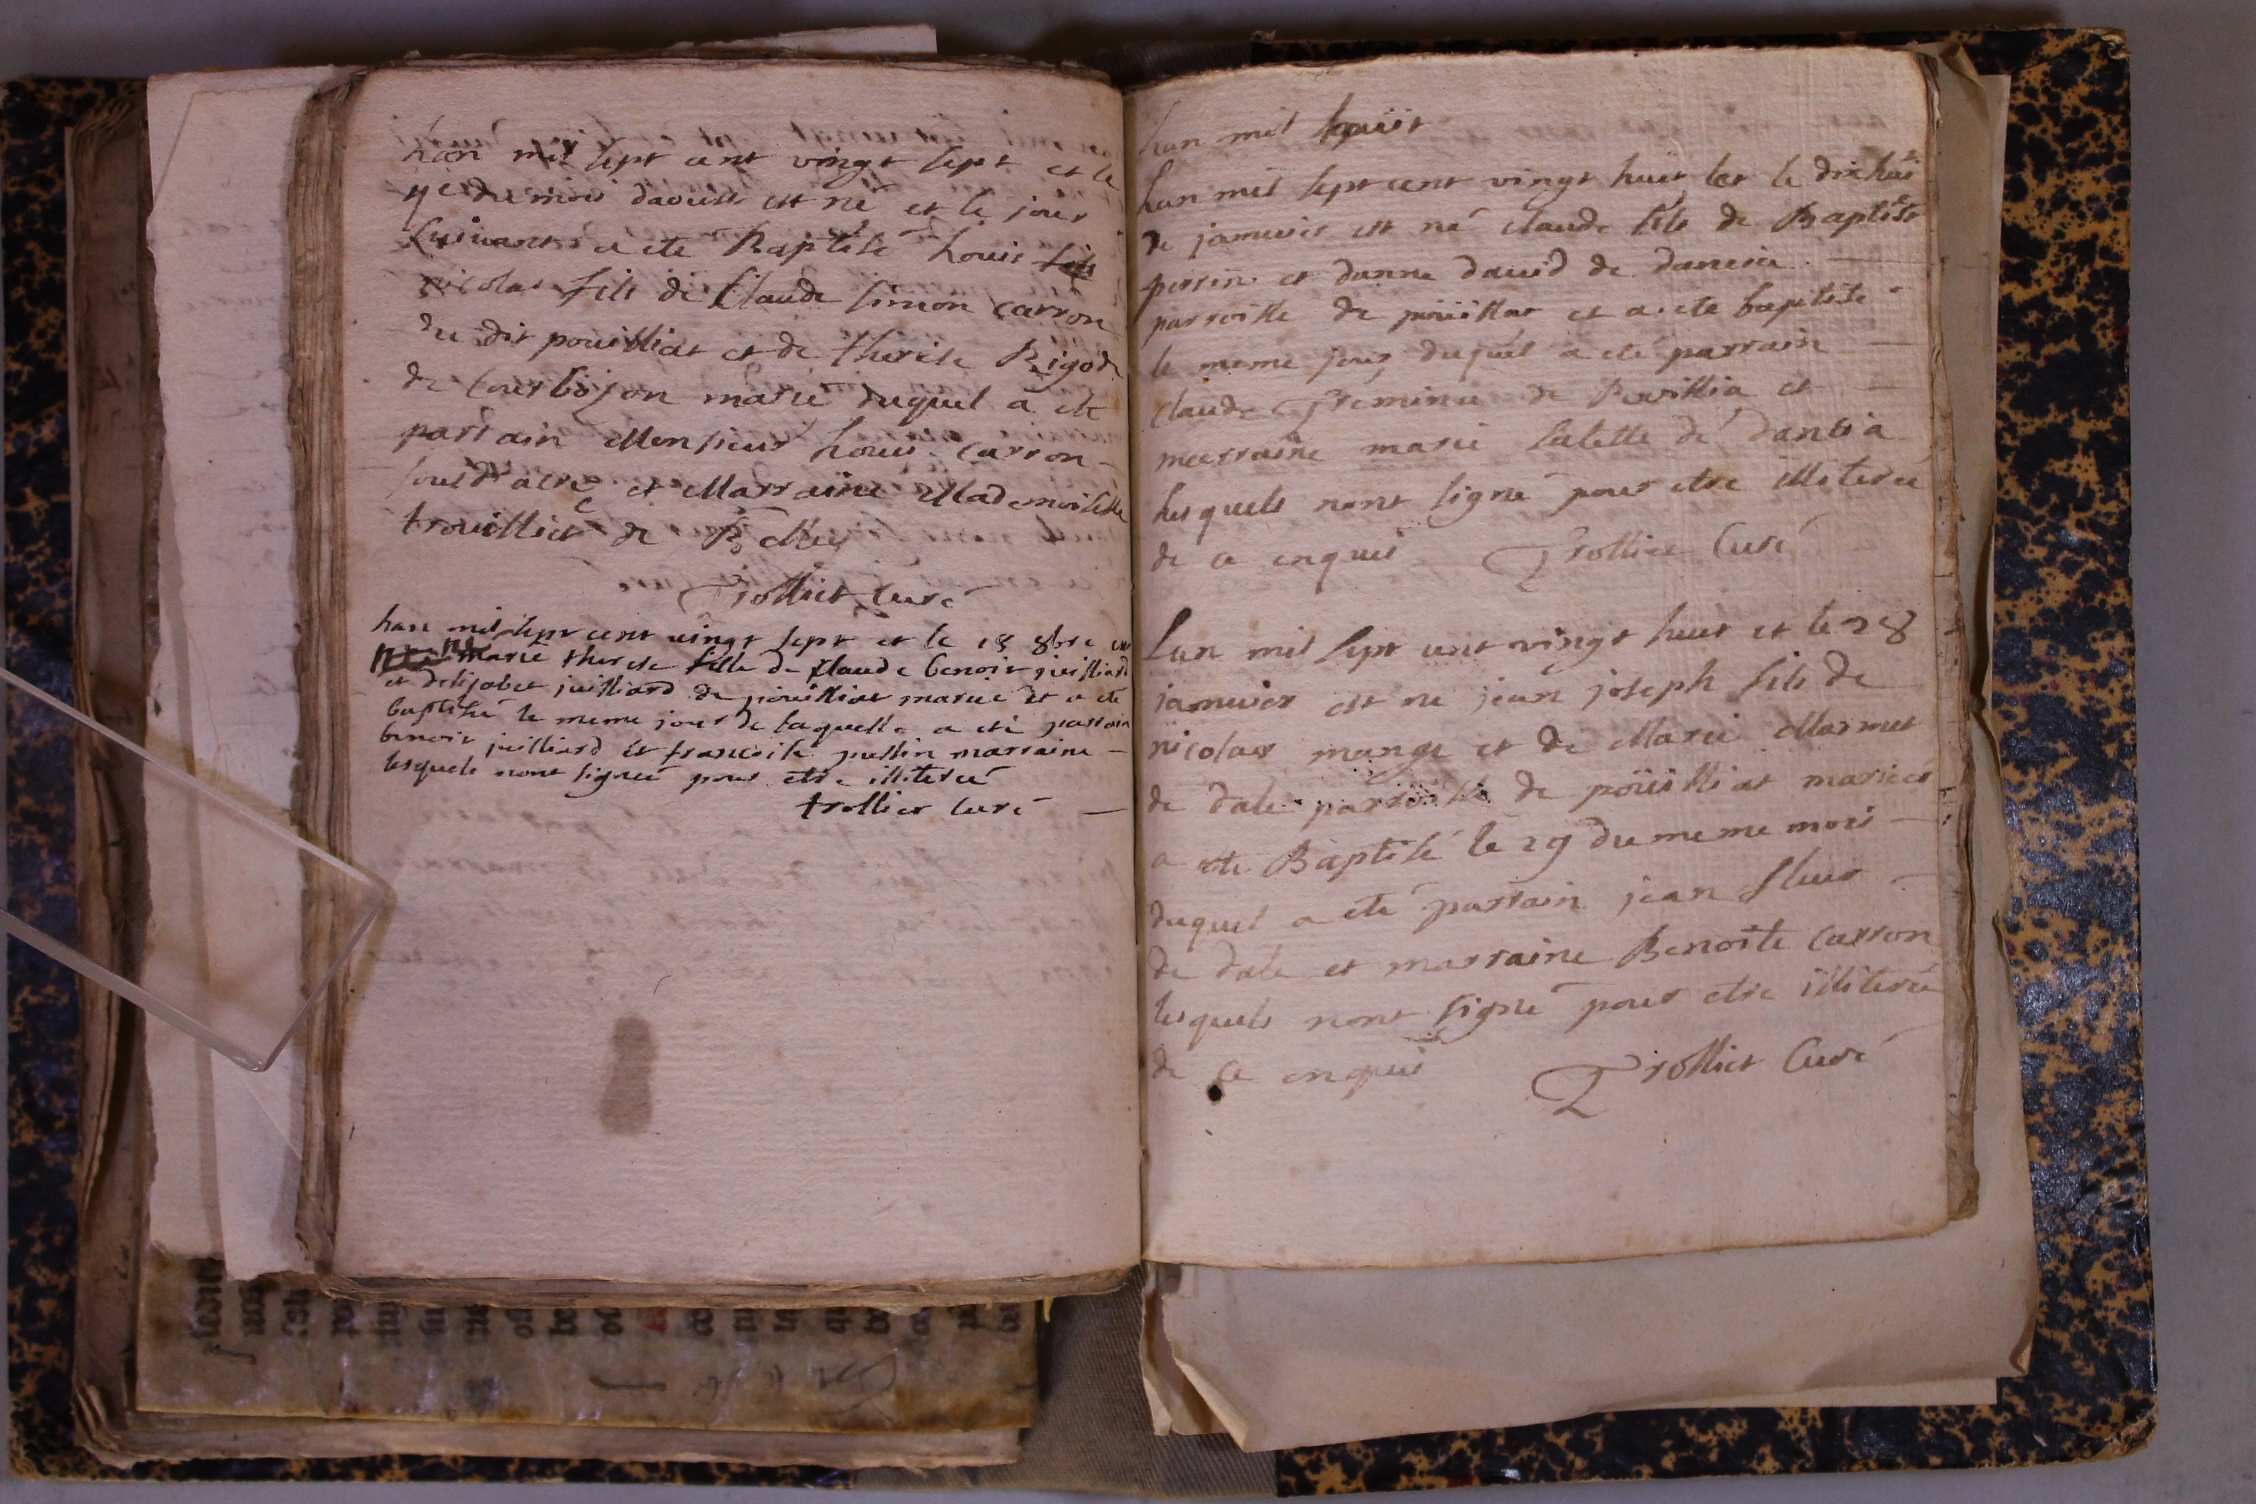 Lan mil sept cent vingt sept et le
4e du mois daoust est né et le jour
suivant a ete Baptisé Louis fils
nicolas fils de Claude simon carron
du dit pouilliat et de therese Rigod
de Courbojon marié duquel a ete
parrain Monsieur Louis carron
et Marraine Mademoiselle
trouilliet de
Trolliet Curé
Lan mil sept cent vingt sept et le 18 8bre est
marie therese fille de Claude benoit juilliard
et delizabet juilliard de pouilliat mariée et a ete
baptisée le meme jour de laquelle a eté parrain
benoit juilliard et francoise pussin marraine
lesquels nont signée pour etre illiterée
trolliet curé
Lan mil
Lan mil sept cent vingt huit et le dixhuit
de janvier est né claude fils de Baptiste
perrin et danne david de dancia
parroisse de pouillat et a ete baptisé
le meme jour duquel a eté parrain
claude de Pouillia et
marraine marie de dancia
lesquels nont signé pour etre illiterée
de ce enquis Trolliet Curé
Lan mil sept cent vingt huit et le 28
janvier est ne jean joseph fils de
nicolas mange et de Marie Marmet
de dale parroisse de pouilliat mariées
a ete Baptisé le 29 du meme mois
duquel a eté parrain jean
de dale et marraine Benoite carron
lesquels nont signé pour etre illiterée
de ce enquis Trolliet Curé